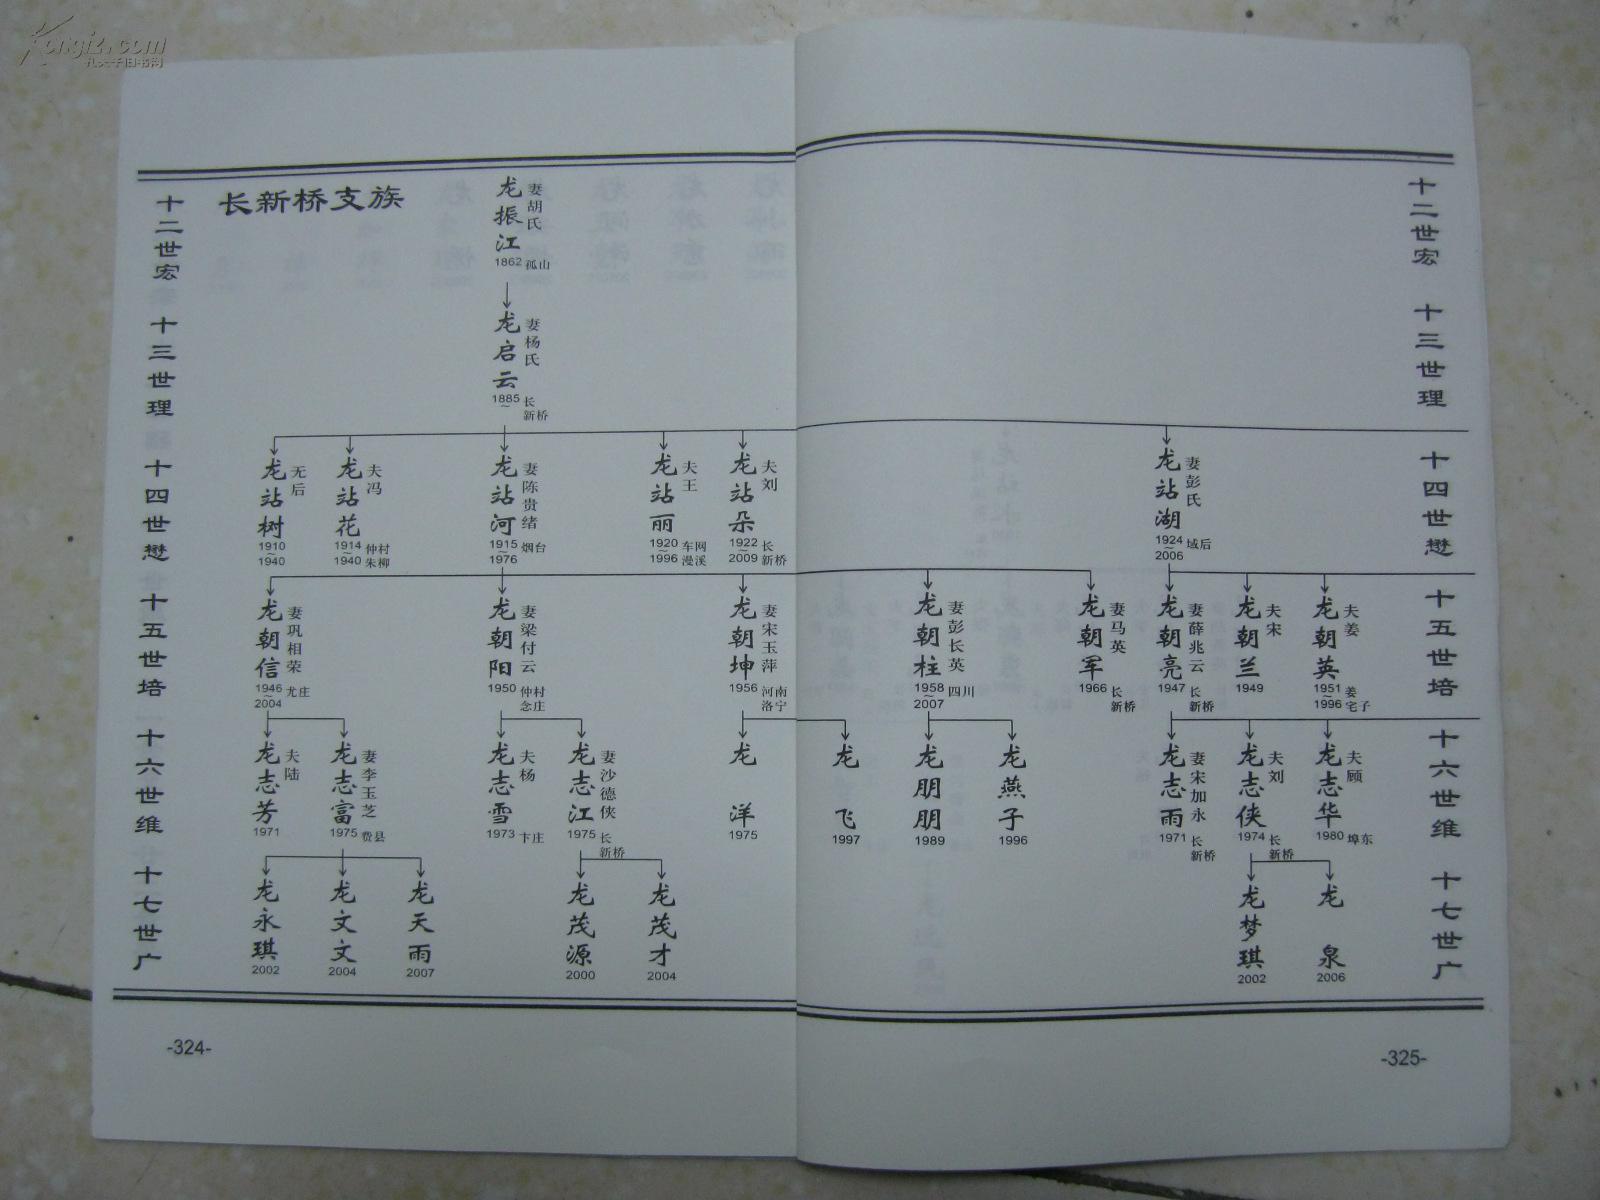 Kongfz.com
孔夫子旧书网
长新桥支族
十二世宏
十三世理
十四世懋
十五世培
十六世维
十七世广
龙振江
妻胡氏
1862 孤山
龙启云
妻杨氏
1885~
长新桥
龙站树
无后
1910~1940
龙站花
夫冯
1914~1940
仲村朱柳
龙站河
妻陈贵绪
1915~1976
烟台
龙站丽
夫王
1920~1996
车网漫溪
龙站朵
夫刘
1922~2009
长新桥
龙站湖
妻彭氏
1924~2006
域后
龙朝信
妻巩相荣
1946~2004
尤庄
龙朝阳
妻梁付云
1950
仲村念庄
龙朝坤
妻宋玉萍
1956
河南洛宁
龙朝柱
妻彭长英
1958~2007
四川
龙朝军
妻马英
1966
长新桥
龙朝亮
妻薛兆云
1947
长新桥
龙朝兰
夫宋
1949
龙朝英
夫姜
1951~1996
姜宅子
龙志芳
夫陆
1971
龙志富
妻李玉芝
1975
费县
龙志雪
夫杨
1973
卞庄
龙志江
妻沙德侠
1975
长新桥
龙洋
1975
龙飞
1997
龙朋朋
1989
龙燕子
1996
龙志雨
妻宋加永
1971
长新桥
龙志侠
夫刘
1974
长新桥
龙志华
夫顾
1980
埠东
龙永琪
2002
龙文文
2004
龙天雨
2007
龙茂源
2000
龙茂才
2004
龙梦琪
2002
龙泉
2006
十二世宏
十三世理
十四世懋
十五世培
十六世维
十七世广
-324-
-325-